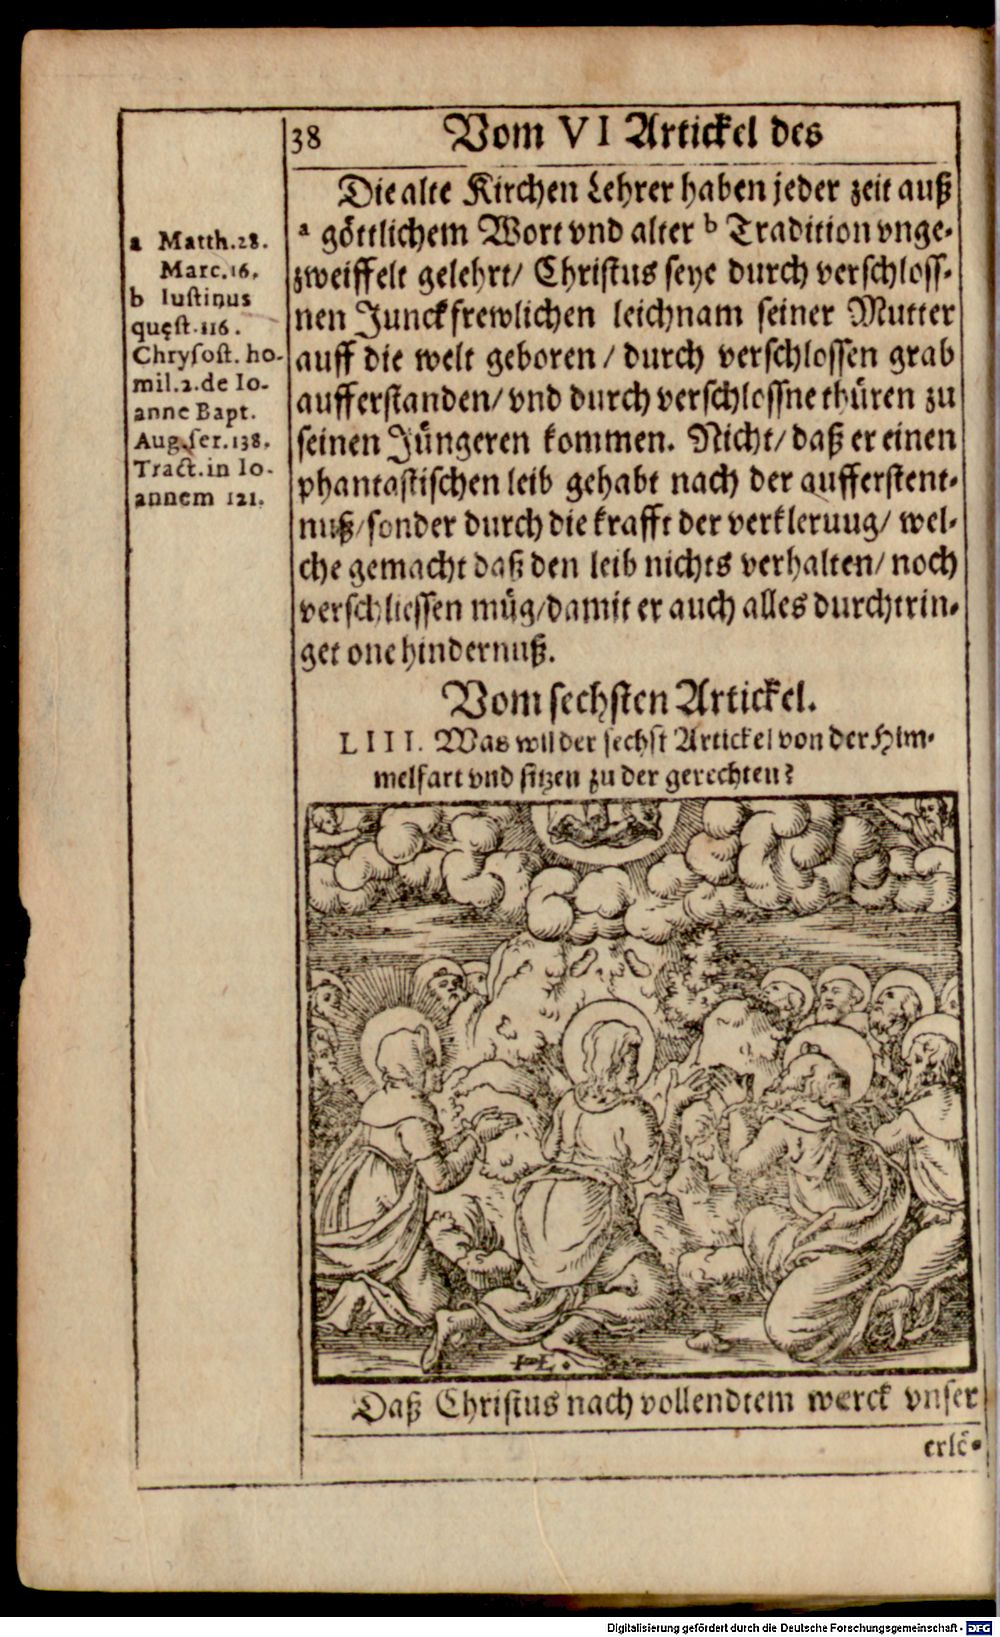 38 Vom VI Artickel des
Die alte Kirchen Lehrer haben jeder zeit auß
a göttlichem Wort vnd alter b Tradition vnge-
zweiffelt gelehrt/ Christus seye durch verschloss-
nen Junckfrewlichen leichnam seiner Mutter
auff die welt geboren/ durch verschlossen grab
aufferstanden/ vnd durch verschlossne thüren zu
seinen Jüngeren kommen. Nicht/ daß er einen
phantastischen leib gehabt nach der aufferstent-
nuß/ sonder durch die krafft der verkleruug/ wel-
che gemacht daß den leib nichts verhalten/ noch
verschliessen müg/ damit er auch alles durchtrin-
get one hindernuß.
a Matth. 28.
Marc. 16.
b Iustinus
quęst. 116.
Chrysost. ho-
mil. 2. de Io-
anne Bapt.
Aug. ser. 138.
Tract. in Io-
annem 121.
Vom sechsten Artickel.
LIII. Was wil der sechst Artickel von der Him-
melfart vnd sitzen zu der gerechten?
HL.
Daß Christus nach vollendtem werck vnser
erlö-
Digitalisierung gefördert durch die Deutsche Forschungsgemeinschaft - DFG